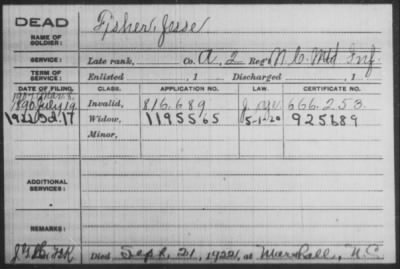 DEAD
NAME OF SOLDIER:
Fisher, Jesse
SERVICE:
Late rank, Co. A, 2 Reg't N.C. Mtd Inf.
TERM OF SERVICE:
Enlisted , 1 Discharged , 1
DATE OF FILING. CLASS. APPLICATION NO. LAW. CERTIFICATE NO.
1890 July 19 Invalid, 816.689 666.253
1922 Oct 17 Widow, 1195565 5-1-20 925689
Minor,
ADDITIONAL SERVICES:
REMARKS:
Died Sept. 21, 1922, at Marshall, N.C.